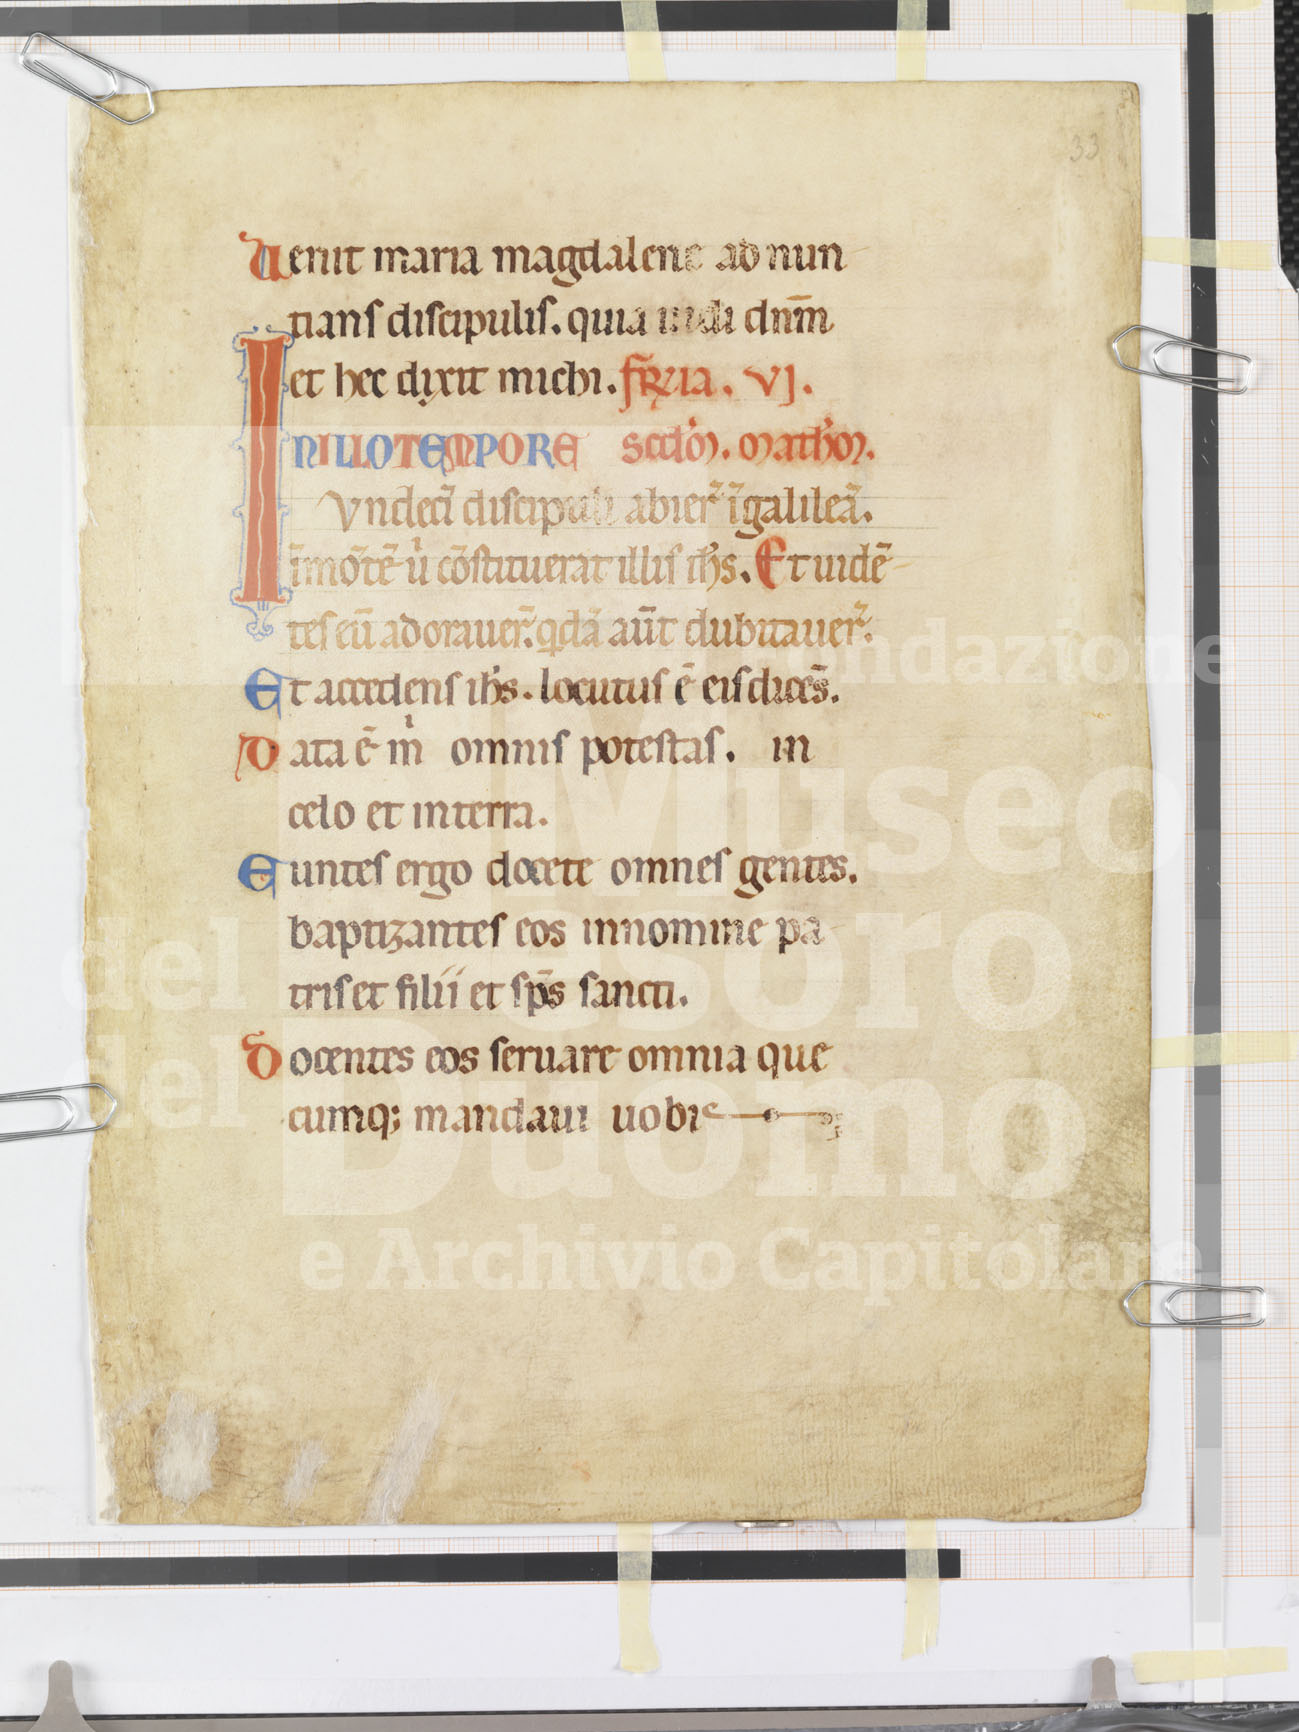 33
Uenit maria magdalene ad nun
tians discipulis. quia uidi dnm̄
et hec dixit michi. fr̄ia. vj.
IN ILLO TEMPORE scd̓m. math̓m.
Vndeci̅ discipuli abier̄ i̅galilea̅.
i̅mo̅te̅ u̓ co̅stituerat illis ih̓s. Et uide̅
tes eu̅ adorauer̄. qda̅ aut̅ dubitauer̄.
Et accedens ih̓s. locutus e̅ eis dice̅s.
Data e̅ m̓ omnis potestas. in
celo et in terra.
Euntes ergo docete omnes gentes.
baptizantes eos in nomine pa
tris et filii et sp̅s sancti.
Docentes eos seruare omnia que
cumq; mandaui uobis
fondazione
Museo
del Tesoro
del Duomo
e Archivio Capitolare